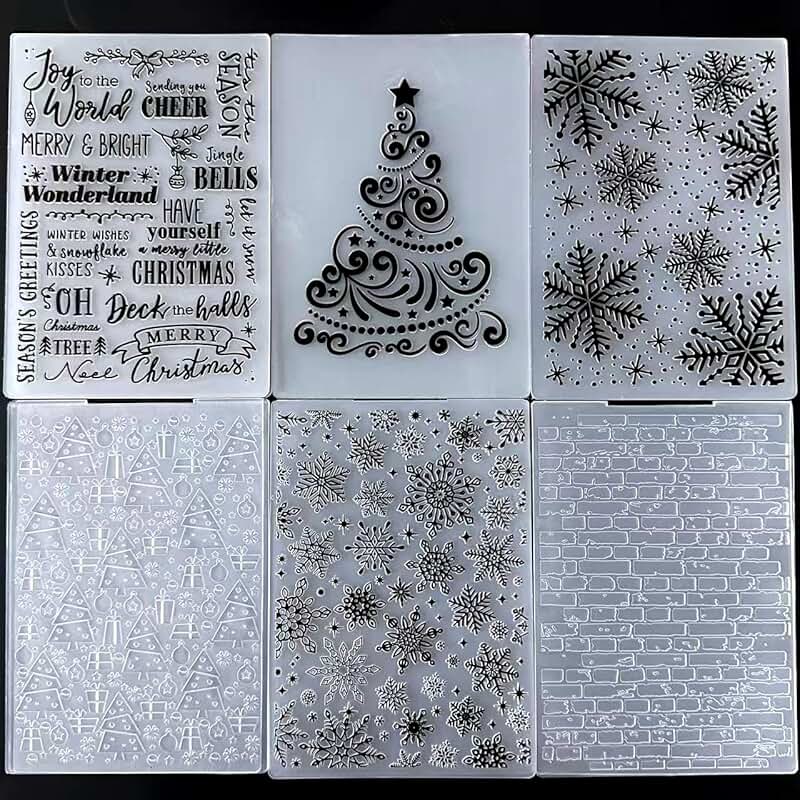 Joy to the World
Sending you
CHEER
'tis the SEASON
MERRY & BRIGHT
Jingle
BELLS
Winter
Wonderland
HAVE
yourself
a merry little
CHRISTMAS
let it snow
WINTER WISHES
& snowflake
KISSES
SEASON'S GREETINGS
OH
Christmas
TREE
Deck the halls
MERRY
Noel
Christmas